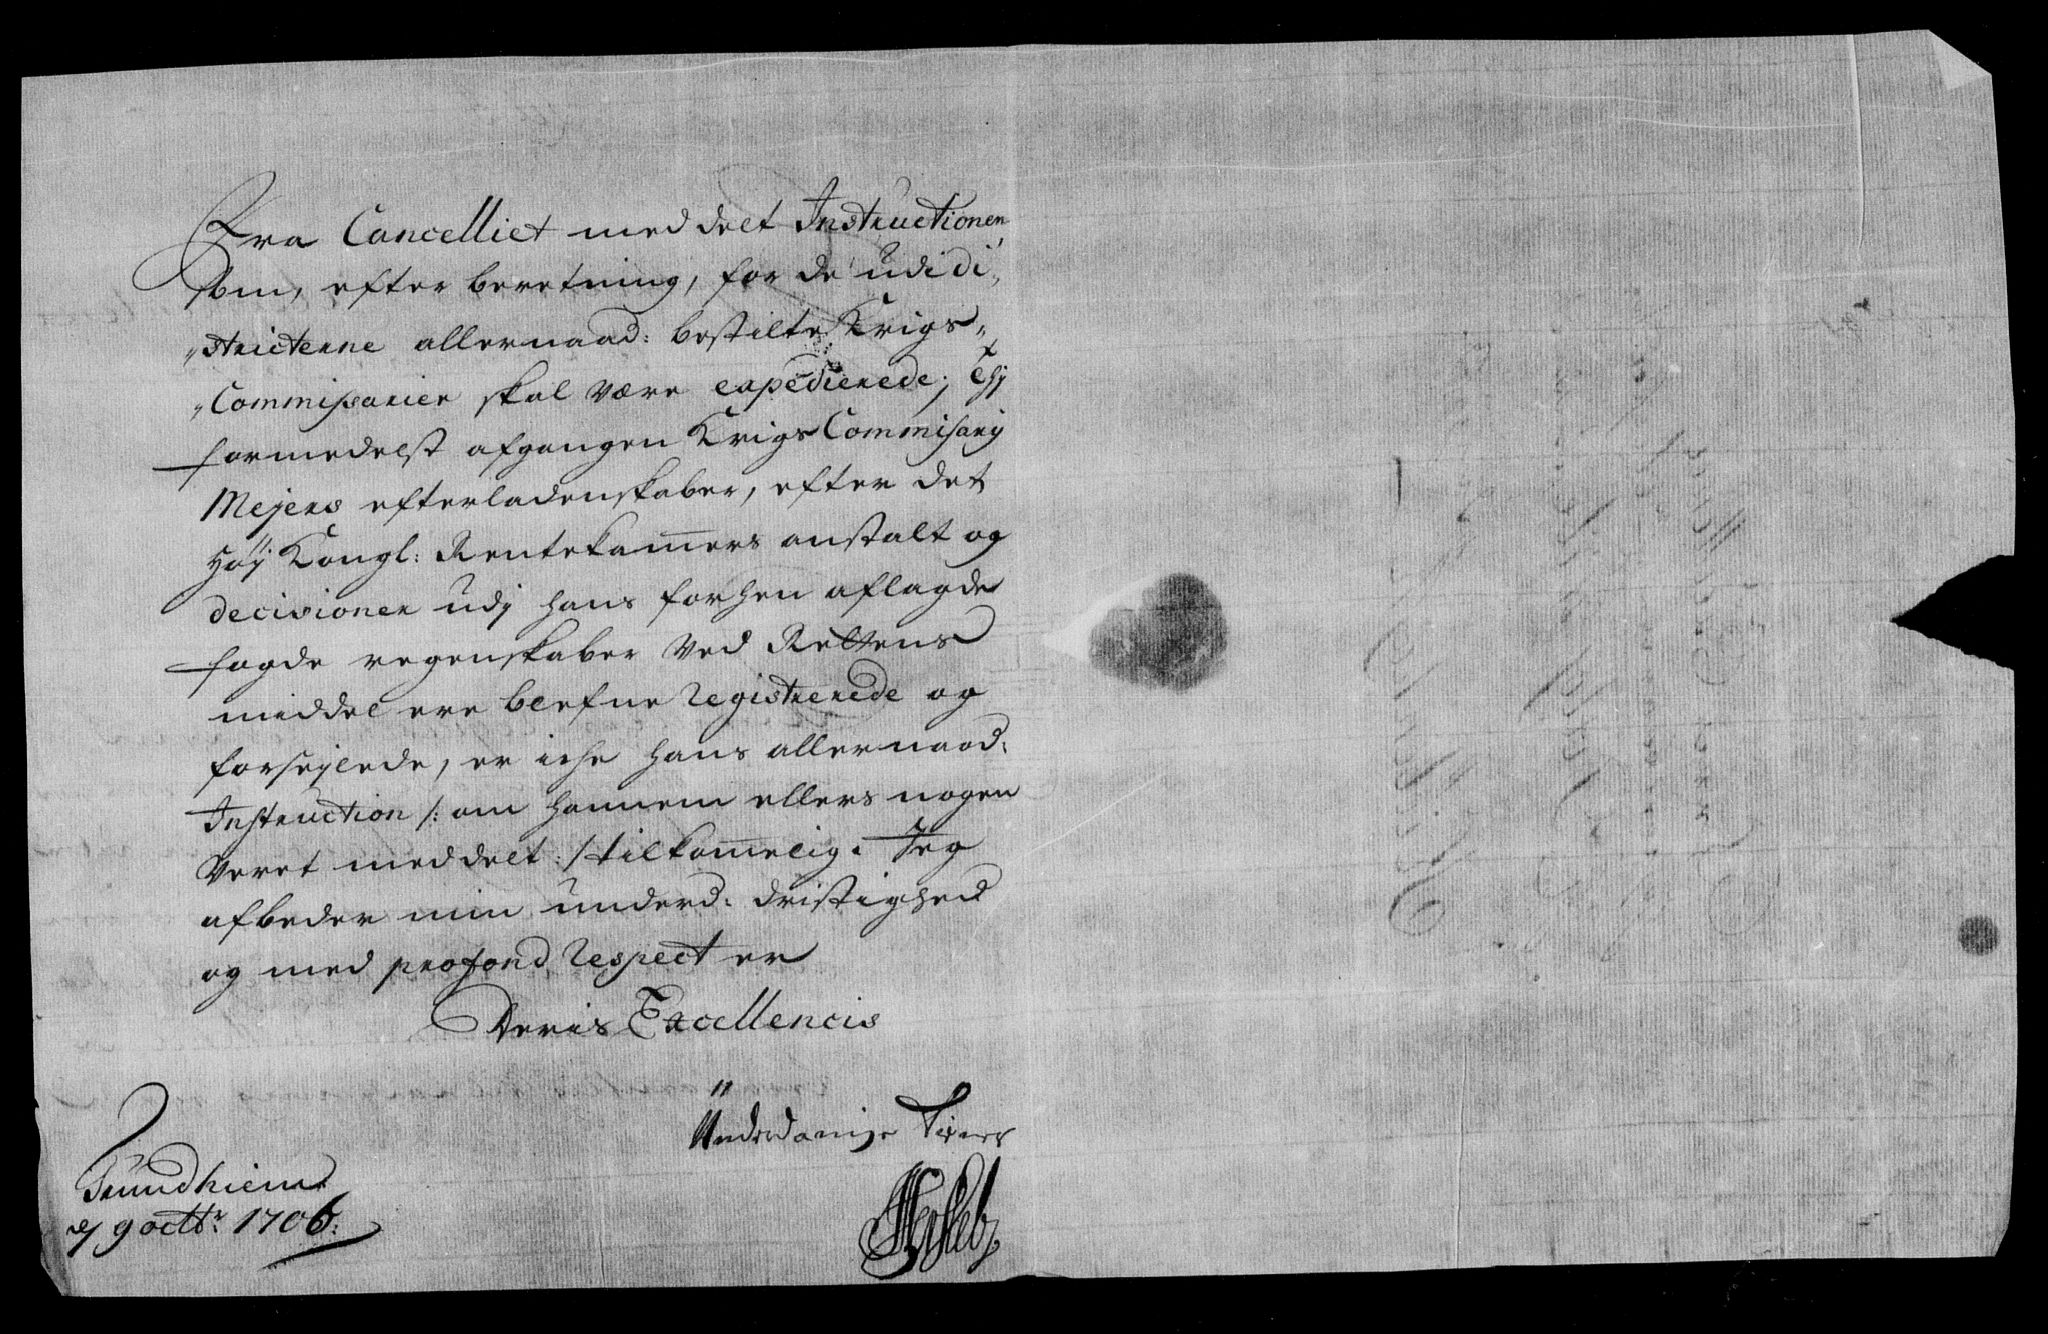 Fra Cancelliet meddelt Instructionen
som, efter beretning, for de udi di„
„stricterne allernaad: bestilte Krigs„
„Commissarier skal være expedierede; Thj
formedelst afgangen Krigs Commisarij
Mejers efterladenskaber, efter det
Høy Kongl: Rentekamers anstalt og
decisioner udj hans forhen aflagde
fogde regenskaber ved Rettens
middel ere blefne registrerede og
forseylede, er iche hans allernaad:
Instruction /: om hannem ellers nogen
veret meddelt :/ tilkomelig. Jeg
afbeder min underd: dristighed
og med profond respect er
Deris Excellencis
Underdanige Tiener
Trundhiem
d 9 octbr: 1706: